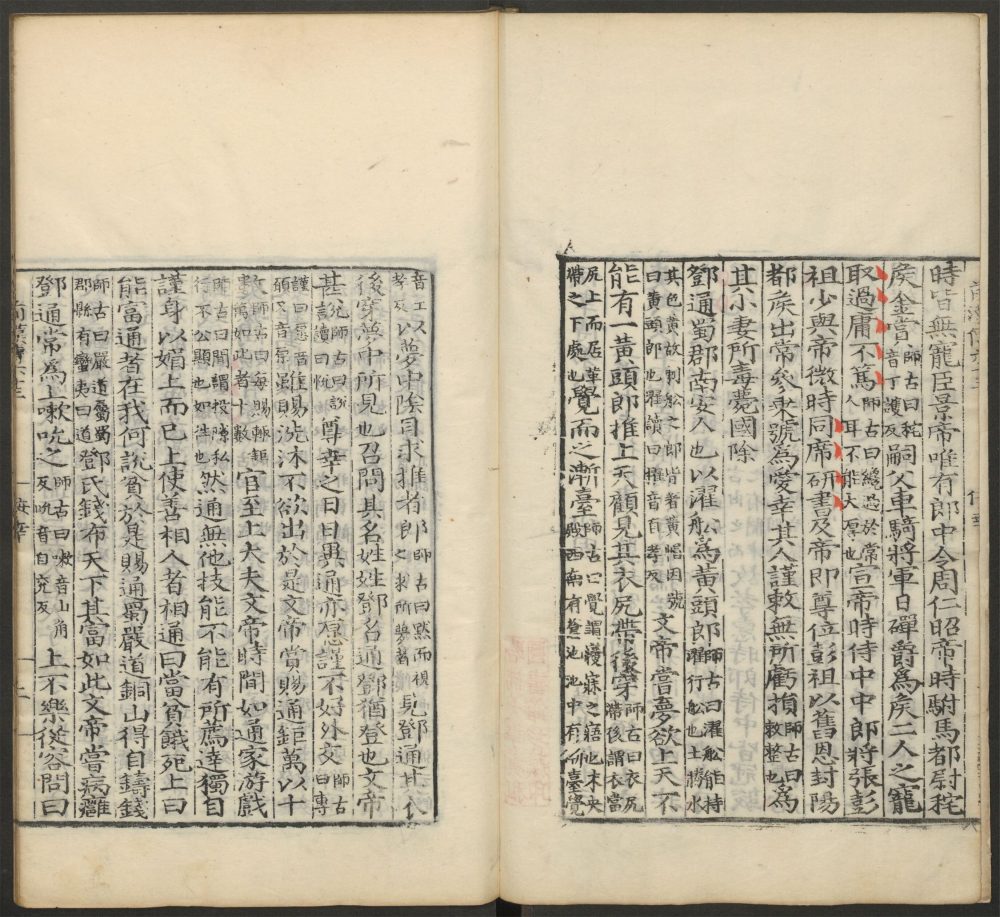 時皆無寵臣景帝唯有郎中令周仁昭帝時駙馬都尉秺
侯金賞師古曰秺音丁護反嗣父車騎將軍日磾爵爲侯二人之寵
取過庸不篤師古曰纔過於常人耳不能大厚也宣帝時侍中中郎將張彭
祖少與帝微時同席研書及帝即尊位彭祖以舊恩封陽
都侯出常參乘號爲愛幸其人謹敕無所虧損師古曰敕整也爲
其小妻所毒薨國除
鄧通蜀郡南安人也以濯船爲黃頭郎師古曰濯船能持濯行船也土勝水
其色黃故刺船之郎皆著黃帽因號曰黃頭郎也濯讀曰櫂音直孝反文帝嘗夢欲上天不
能有一黃頭郎推上天顧見其衣尻帶後穿師古曰衣尻帶後謂衣當
尻上而居革帶之下處也覺而之漸臺師古曰覺謂寢寐之寤也未央殿西南有蒼池池中有漸臺覺
音工孝反以夢中陰目求推者郎師古曰默而視之求所夢者見鄧通其衣
後穿夢中所見也召問其名姓姓鄧名通鄧猶登也文帝
甚說師古曰說讀曰悅尊幸之日日異通亦愿謹不好外交師古曰專
謹曰愿愿音願又音原雖賜洗沐不欲出於是文帝賞賜通鉅萬以十
數師古曰每賜輒鉅萬如此者十數官至上大夫文帝時間如通家游戲
師古曰間謂投隙私行不公顯也如往也然通無他技能不能有所薦達獨自
謹身以媚上而已上使善相人者相通曰當貧餓死上曰
能富通者在我何說貧於是賜通蜀嚴道銅山得自鑄錢
師古曰嚴道屬蜀郡縣有蠻夷曰道鄧氏錢布天下其富如此文帝嘗病癰
鄧通常爲上嗽吮之師古曰嗽音山角反吮音自兗反上不樂從容問曰